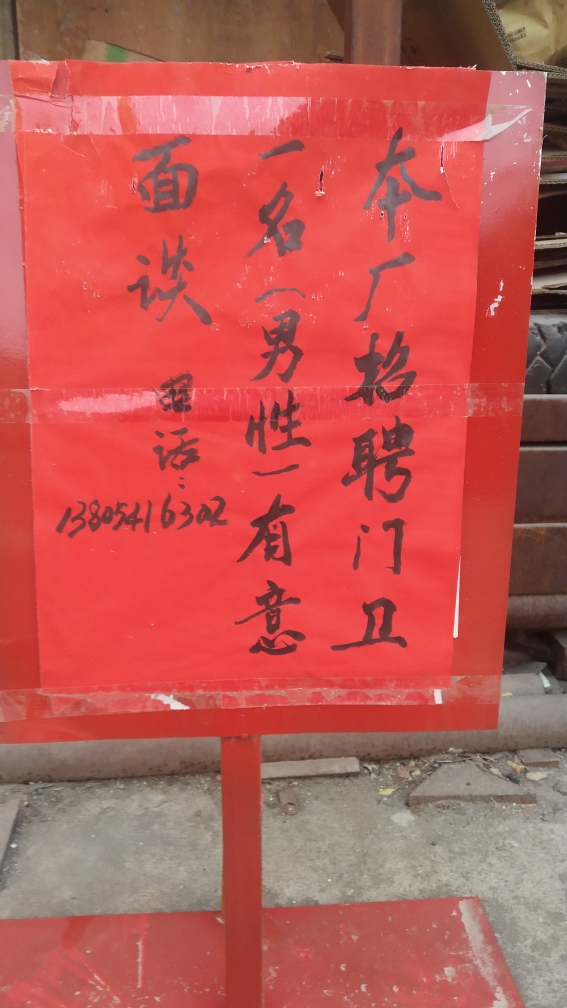 本厂招聘门卫
一名(男性)有意
面谈
电话:
13805416302